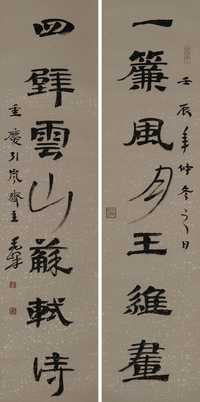 一簾風月王維畫
壬辰年仲冬之日
四壁雲山蘇軾詩
重慶引嵐齋主